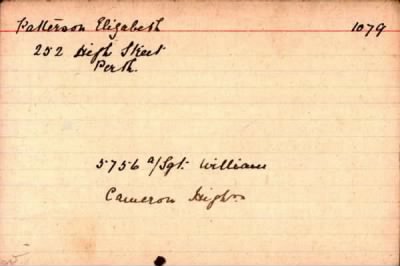 Patterson Elizabeth 1079
252 High Street
Perth.
5756 a/Sgt. William
Cameron Highrs